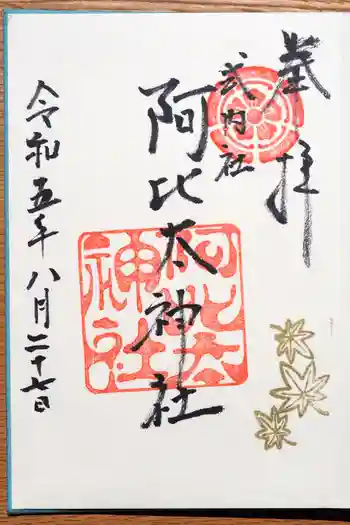 奉拝
式内社
阿比太神社
阿比太神社
令和五年八月二十七日